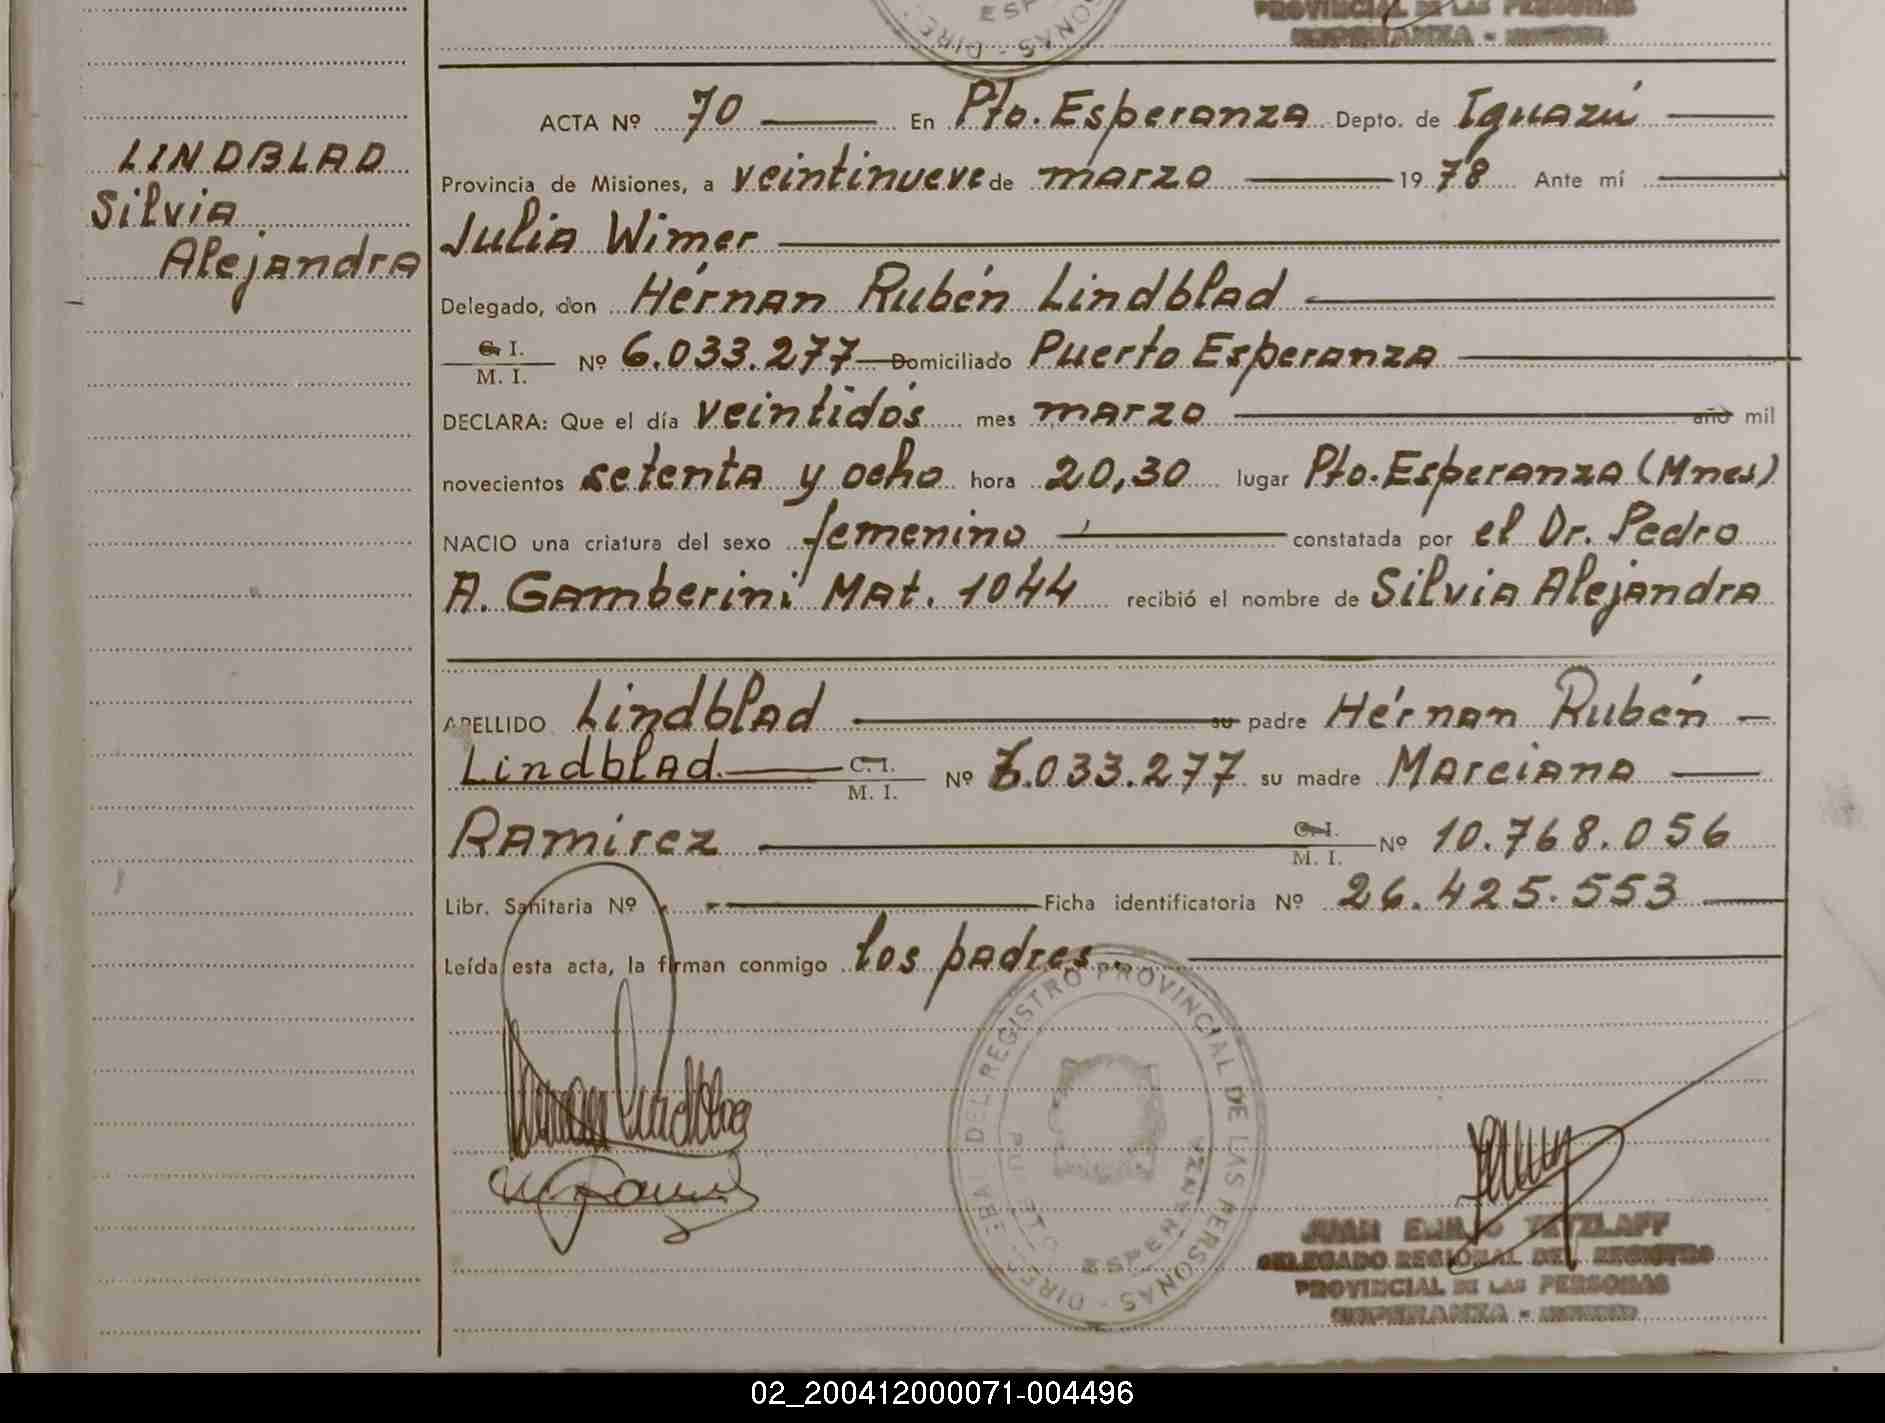 PROVINCIAL DE LAS PERSONAS
ESPERANZA - MISIONES
LINDBLAD
Silvia
Alejandra
ACTA Nº 70 En Pto. Esperanza Depto. de Iguazú
Provincia de Misiones, a veintinueve de marzo 1978 Ante mí
Julia Wimer
Delegado, don Hérnan Rubén Lindblad
C. I. M. I. Nº 6.033.277 Domiciliado Puerto Esperanza
DECLARA: Que el día veintidós mes marzo año mil
novecientos setenta y ocho hora 20,30 lugar Pto. Esperanza (Mnes)
NACIO una criatura del sexo femenino constatada por el Dr. Pedro
A. Gamberini Mat. 1044 recibió el nombre de Silvia Alejandra
APELLIDO Lindblad su padre Hérnan Rubén
Lindblad. C. I. M. I. Nº 6.033.277 su madre Marciana
Ramirez C. I. M. I. Nº 10.768.056
Libr. Sanitaria Nº Ficha identificatoria Nº 26.425.553
Leída esta acta, la firman conmigo los padres.
DEL REGISTRO PROVINCIAL DE LAS PERSONAS
ESPERANZA
JUAN EMILIO TETZLAFF
DELEGADO REGIONAL DEL REGISTRO
PROVINCIAL DE LAS PERSONAS
ESPERANZA - MISIONES
02_200412000071-004496